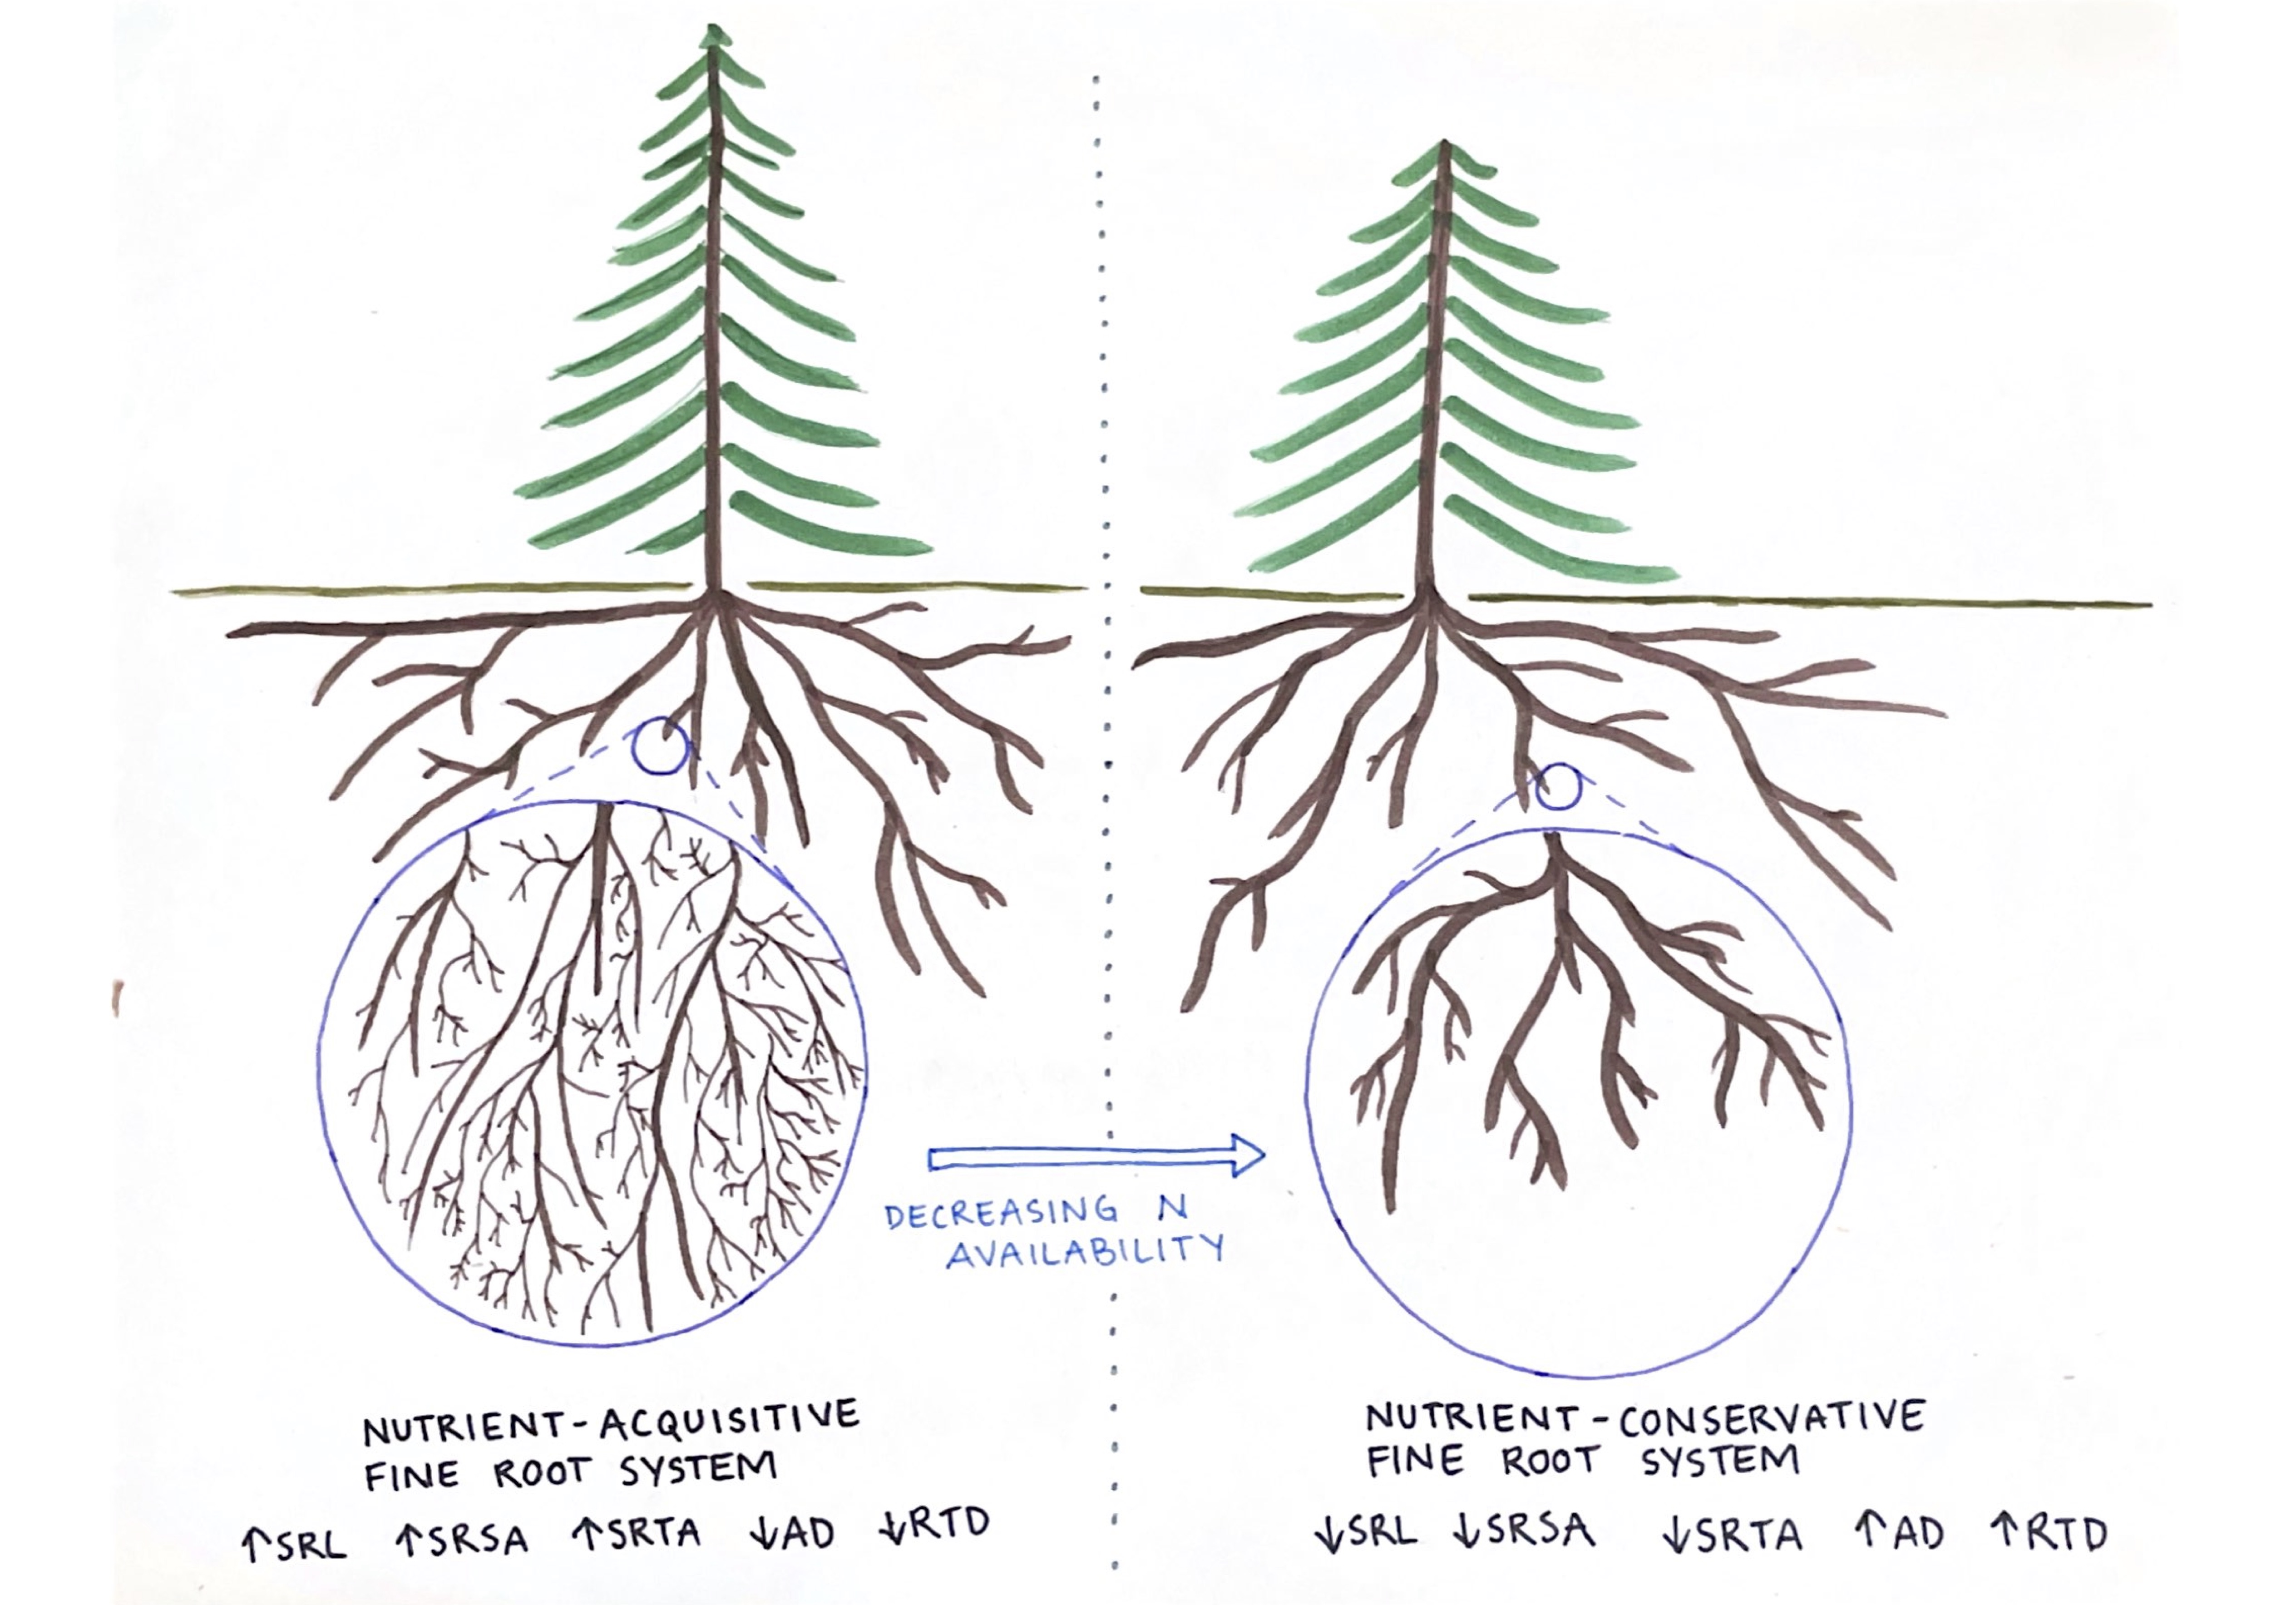 DECREASING N
AVAILABILITY
NUTRIENT-ACQUISITIVE
FINE ROOT SYSTEM
↑SRL ↑SRSA ↑SRTA ↓AD ↓RTD
NUTRIENT-CONSERVATIVE
FINE ROOT SYSTEM
↓SRL ↓SRSA ↓SRTA ↑AD ↑RTD